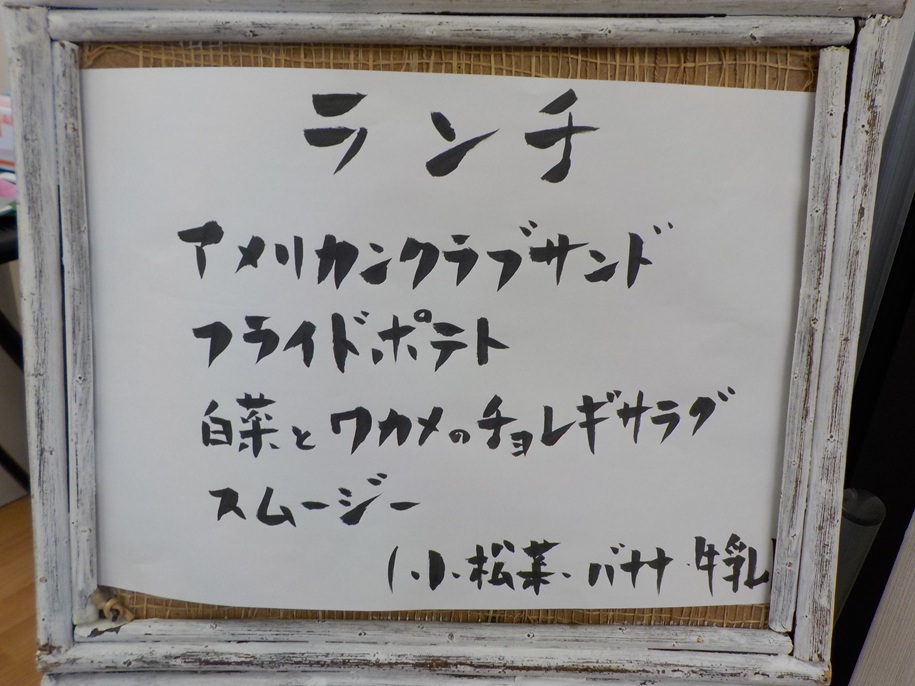 ランチ
アメリカンクラブサンド
フライドポテト
白菜とワカメのチョレギサラダ
スムージー
(小松菜、バナナ、牛乳